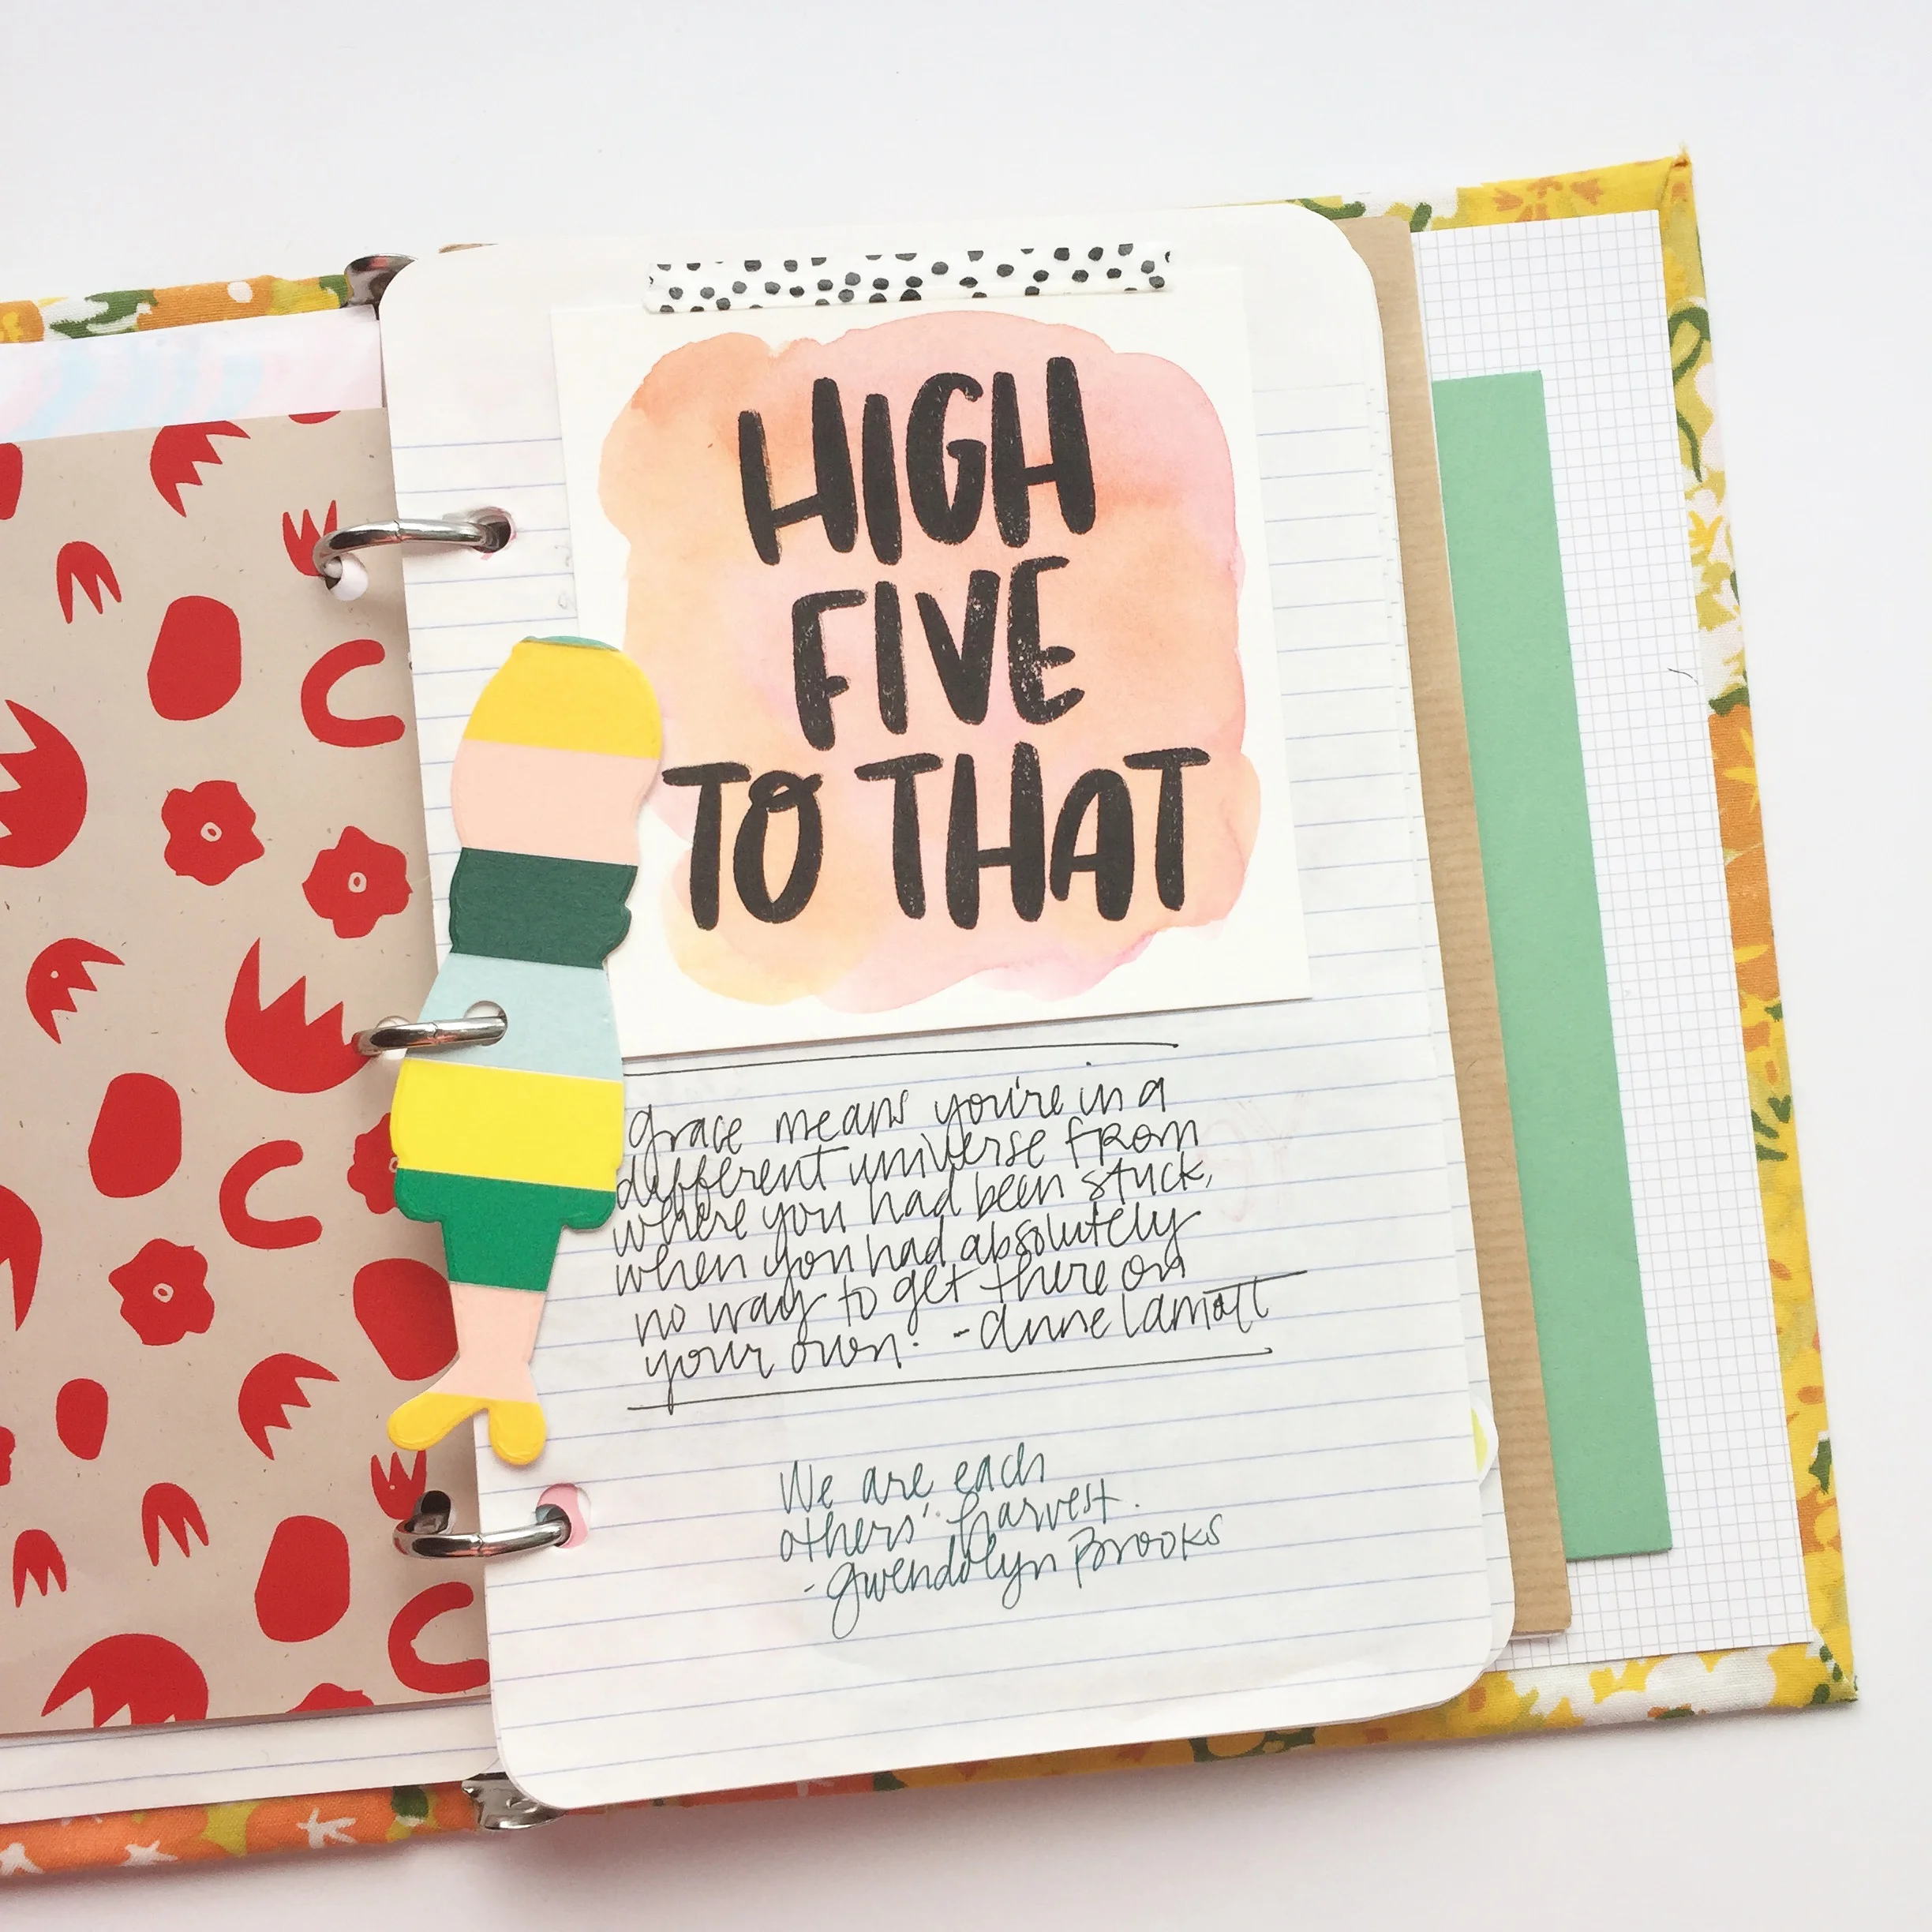 HIGH
FIVE
TO THAT
grace means you're in a
different universe from
where you had been stuck,
when you had absolutely
no way to get there on
your own. - anne lamott
We are each
others' harvest.
- gwendolyn Brooks